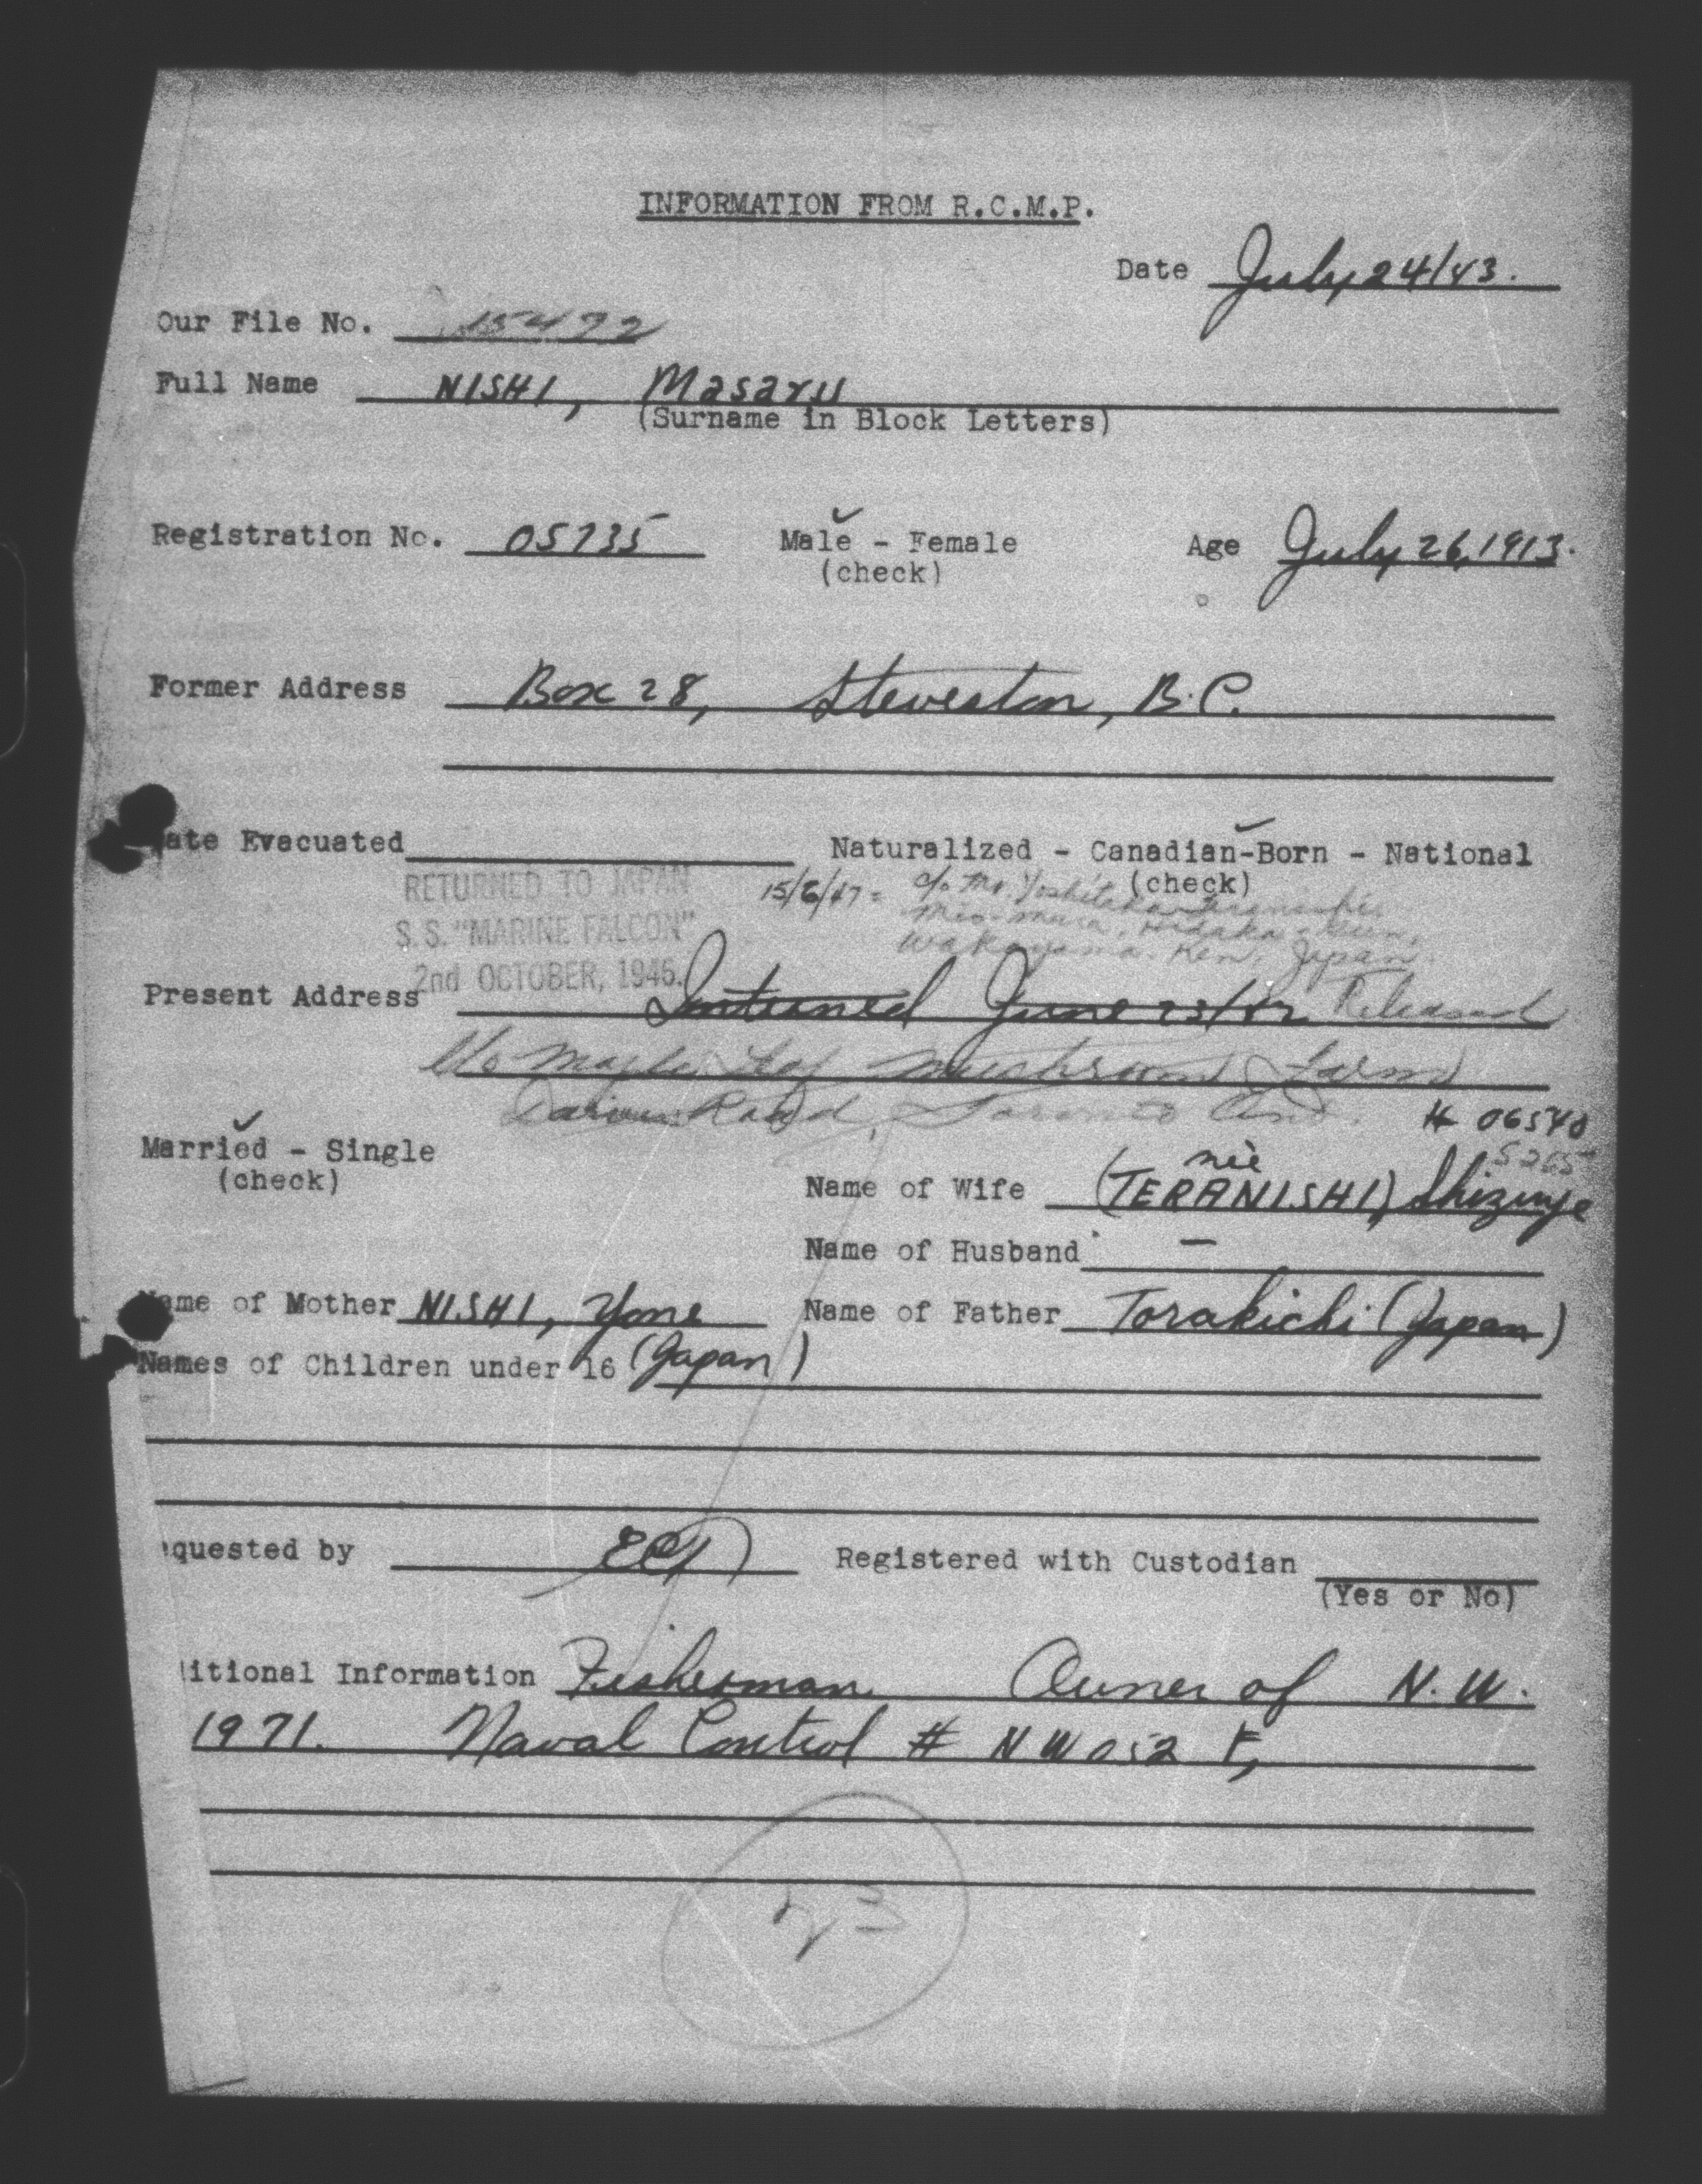 INFORMATION FROM R.C.M.P.
Date July 24/43.
Our File No. 15472
Full Name NISHI, Masaru
(Surname in Block Letters)
Registration No. 05735 Male - Female Age July 26, 1913.
(check)
Former Address Box 28, Steveston, B.C.
ate Evacuated Naturalized - Canadian-Born - National
(check)
RETURNED TO JAPAN 15/6/47 = c/o Mr. Yoshitaka Teranishi
S.S. "MARINE FALCON" Mio-mura, Hidaka-Gun,
2nd OCTOBER, 1946. Wakayama-Ken, Japan.
Present Address Interned June 23/42 Released
c/o Maple Leaf Mushroom Farm
Road, Toronto Ont. # 06540
Married - Single
(check)
Name of Wife (née TERANISHI) Shizuye
Name of Husband –
ame of Mother NISHI, Yone Name of Father Torakichi (Japan)
Names of Children under 16 (Japan)
quested by Registered with Custodian
(Yes or No)
itional Information Fisherman Owner of N.W.
1971. Naval Control # NW052 F,